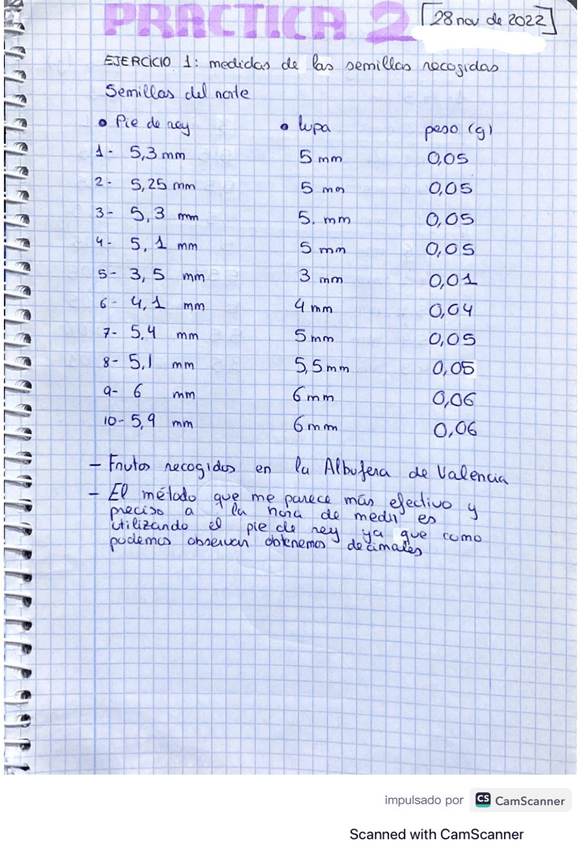 PRACTICA 2 [28 nov de 2022]
EJERCICIO 1: medidas de las semillas recogidas
Semillas del norte
• Pie de rey • lupa peso (g)
1- 5,3 mm 5 mm 0,05
2- 5,25 mm 5 mm 0,05
3- 5,3 mm 5. mm 0,05
4- 5,1 mm 5 mm 0,05
5- 3,5 mm 3 mm 0,01
6- 4,1 mm 4 mm 0,04
7- 5,4 mm 5 mm 0,05
8- 5,1 mm 5,5 mm 0,05
9- 6 mm 6 mm 0,06
10- 5,9 mm 6 mm 0,06
- Frutos recogidos en la Albufera de Valencia
- El método que me parece más efectivo y
preciso a la hora de medir es
utilizando el pie de rey ya que como
podemos observar obtenemos decimales
impulsado por CS CamScanner
Scanned with CamScanner